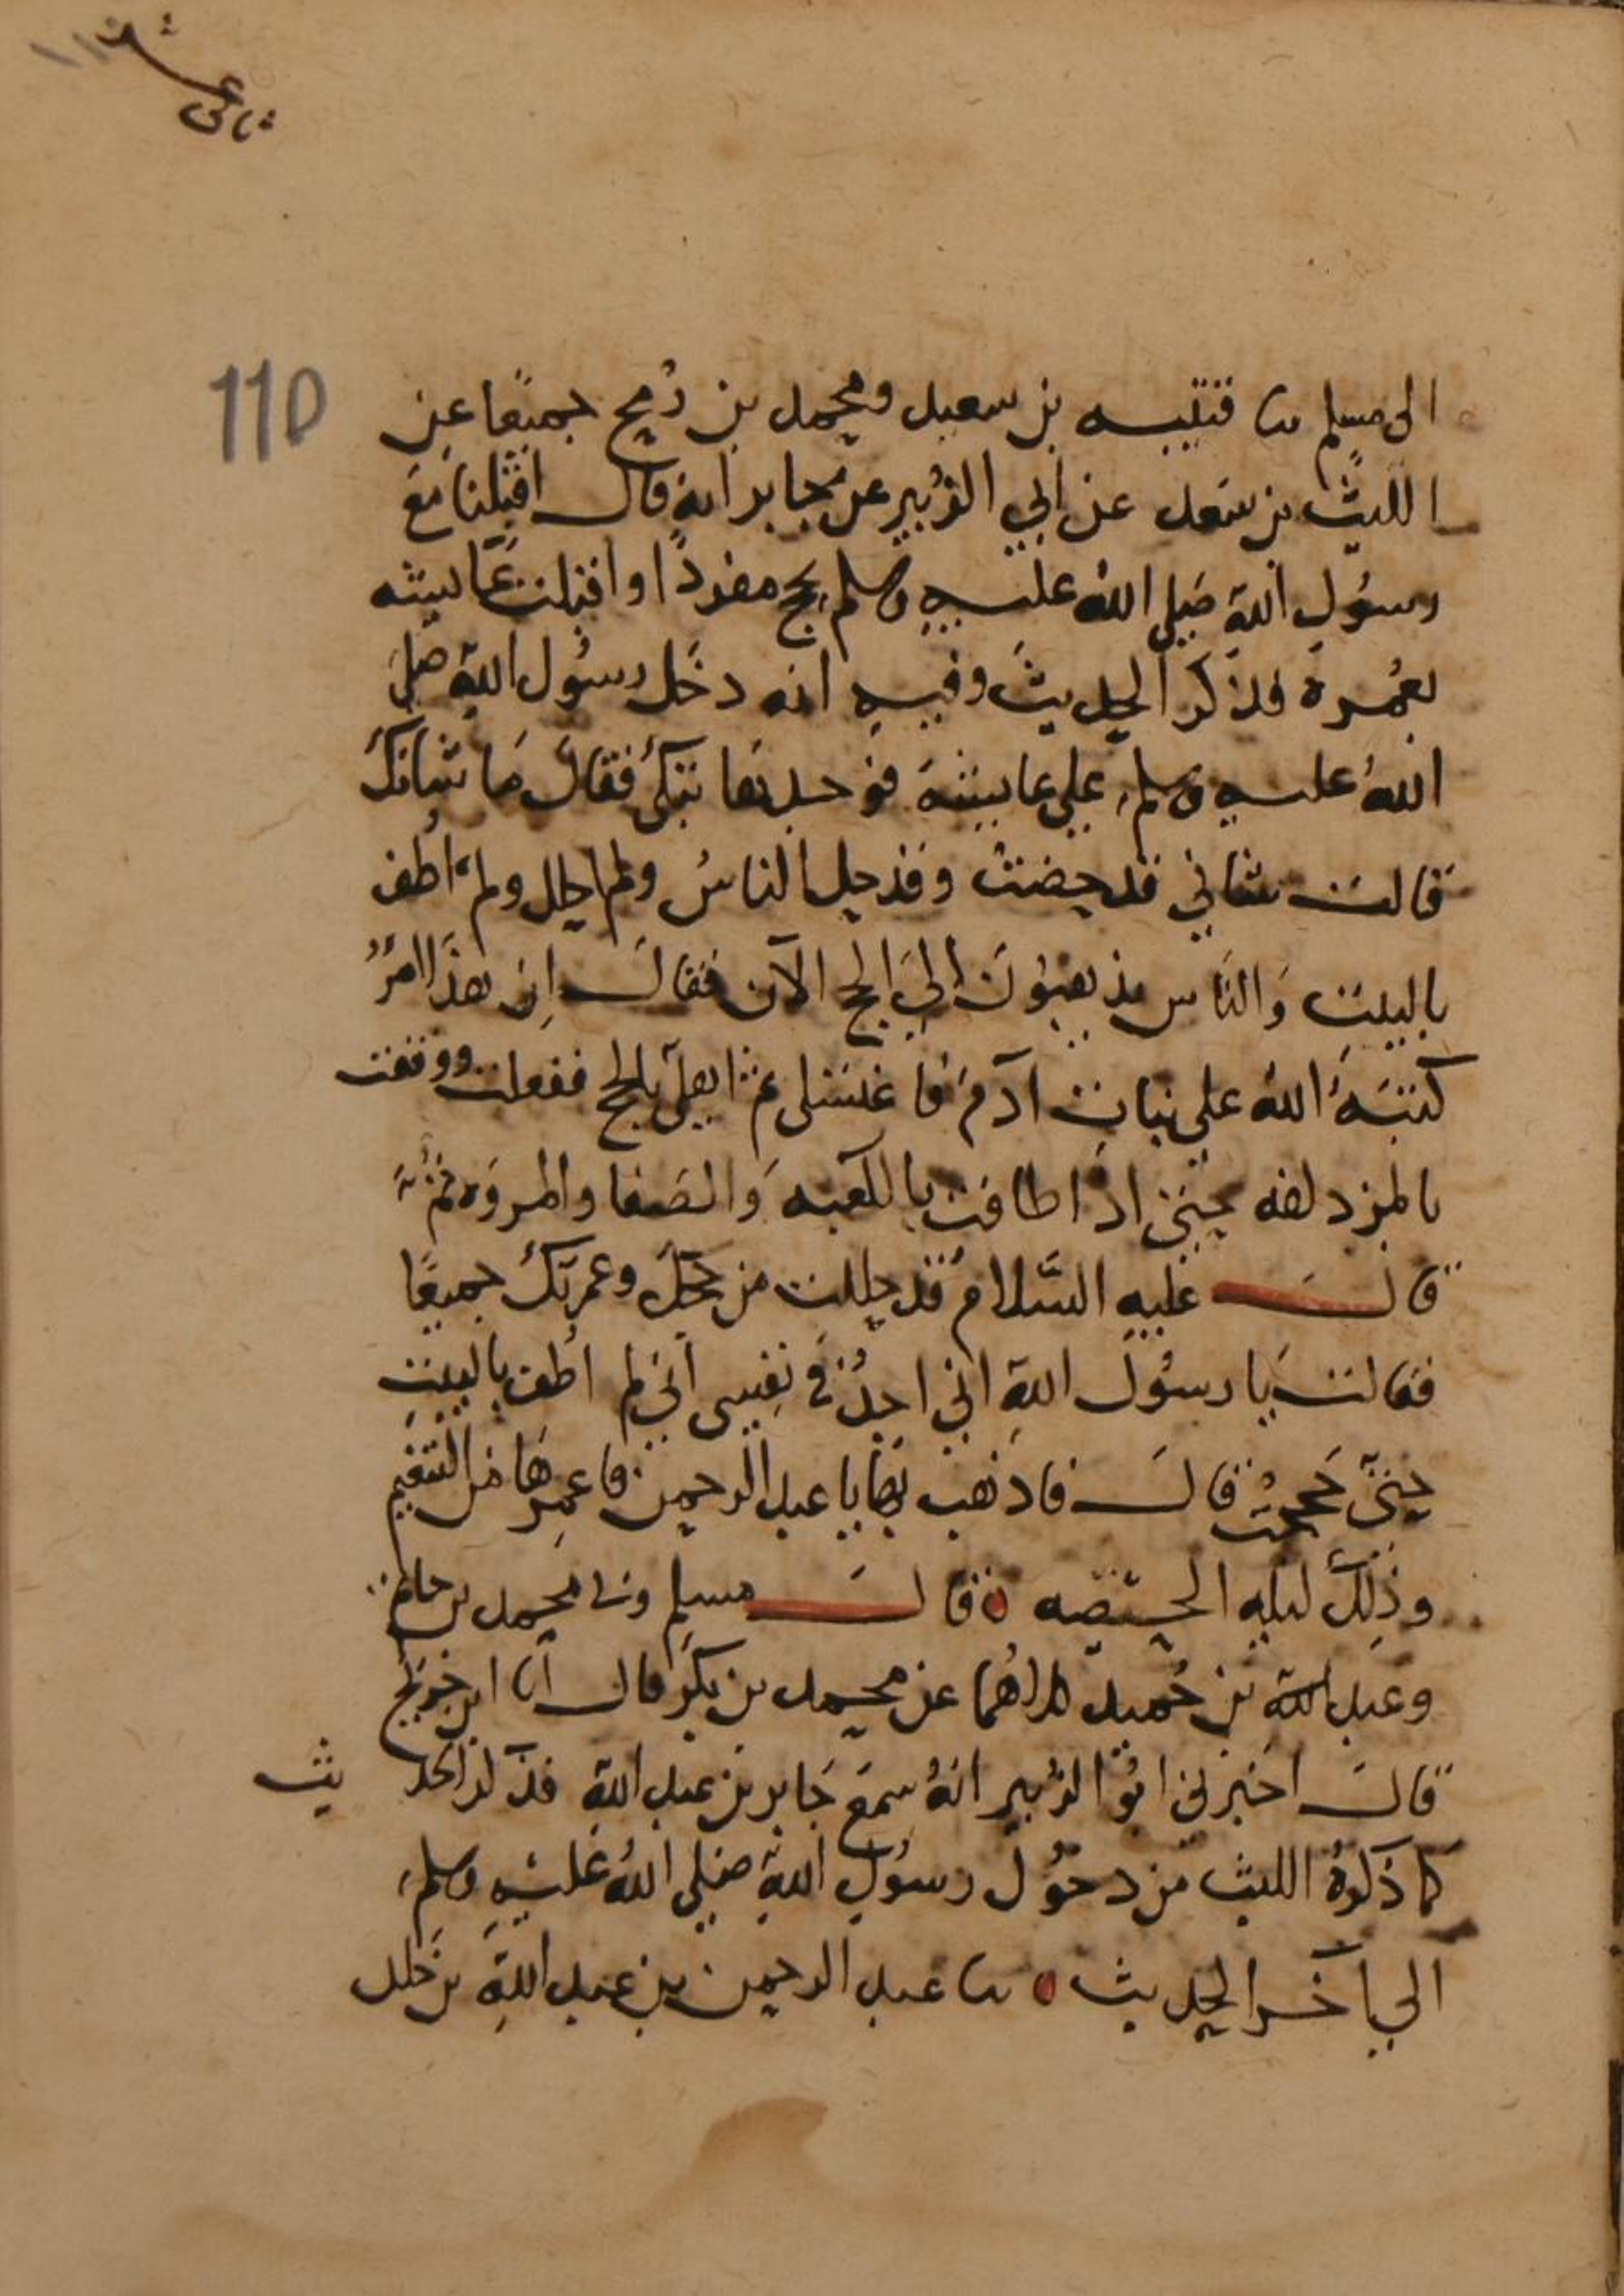 ثانى عشر
110
الى مسلم نا قتيبه بن سعيد ومحمد بن رُمح جميعًا عن
الليث بن سَعد عن ابي الزُبير عن جابر انه قال اقبلنا مَعَ
رسُولِ اللهِ صَلى اللهُ عليهِ وسلم بحج مفردًا واقبلت عَايشه
بعُمرة فذكر الحديثَ وفيهِ انه دخَل رسُول اللهِ صلى
اللهُ عليهِ وسلم على عايشةَ فوجدها تبكى فقالَ مَا شانكِ
قالت شاني قد حِضتُ وقد حل الناسُ ولم احلل ولم اطف
بالبيتِ وَالنَاس يذهبُونَ الىَ الحج الآن فقالَ اِن هذَا امرٌ
كتبَهُ اللهُ على بناتِ آدمَ فاغتسلى ثم اهلى بالحج ففعلت ووقفت
بالمزدلفه حتى اذا طافت بالكعبه وَالصَفا والمروَه ثم
قالَ عليهِ السَّلامُ قد حللت من حجكِ وعمرتكِ جميعًا
فقالت يَا رسُولَ اللهِ اني اجدُ في نفِسى انى لم اطف بالبيتِ
حتى حَججتُ قالَ فاذهب بهَا يا عبد الرحمن فاعمِرهَا من التنعِيم
وذلِك ليله الحَصبه قالَ مسلم وني محمد بن حاتم
وعبد الله بن حُميد كلاهُما عن محمد بن بكر قال انا ابن جُرَيج
قالَ اخبرني ابُو الزُبير انهُ سمعَ جَابر بن عبدِ اللهِ فذكر الحديث
كما ذكرهُ الليث من دخوُل رسُولِ اللهِ صَلى اللهُ عَليْهِ وسلم
الى آخر الحديث نا عبد الرحمن بن عبد اللهِ بن خلد